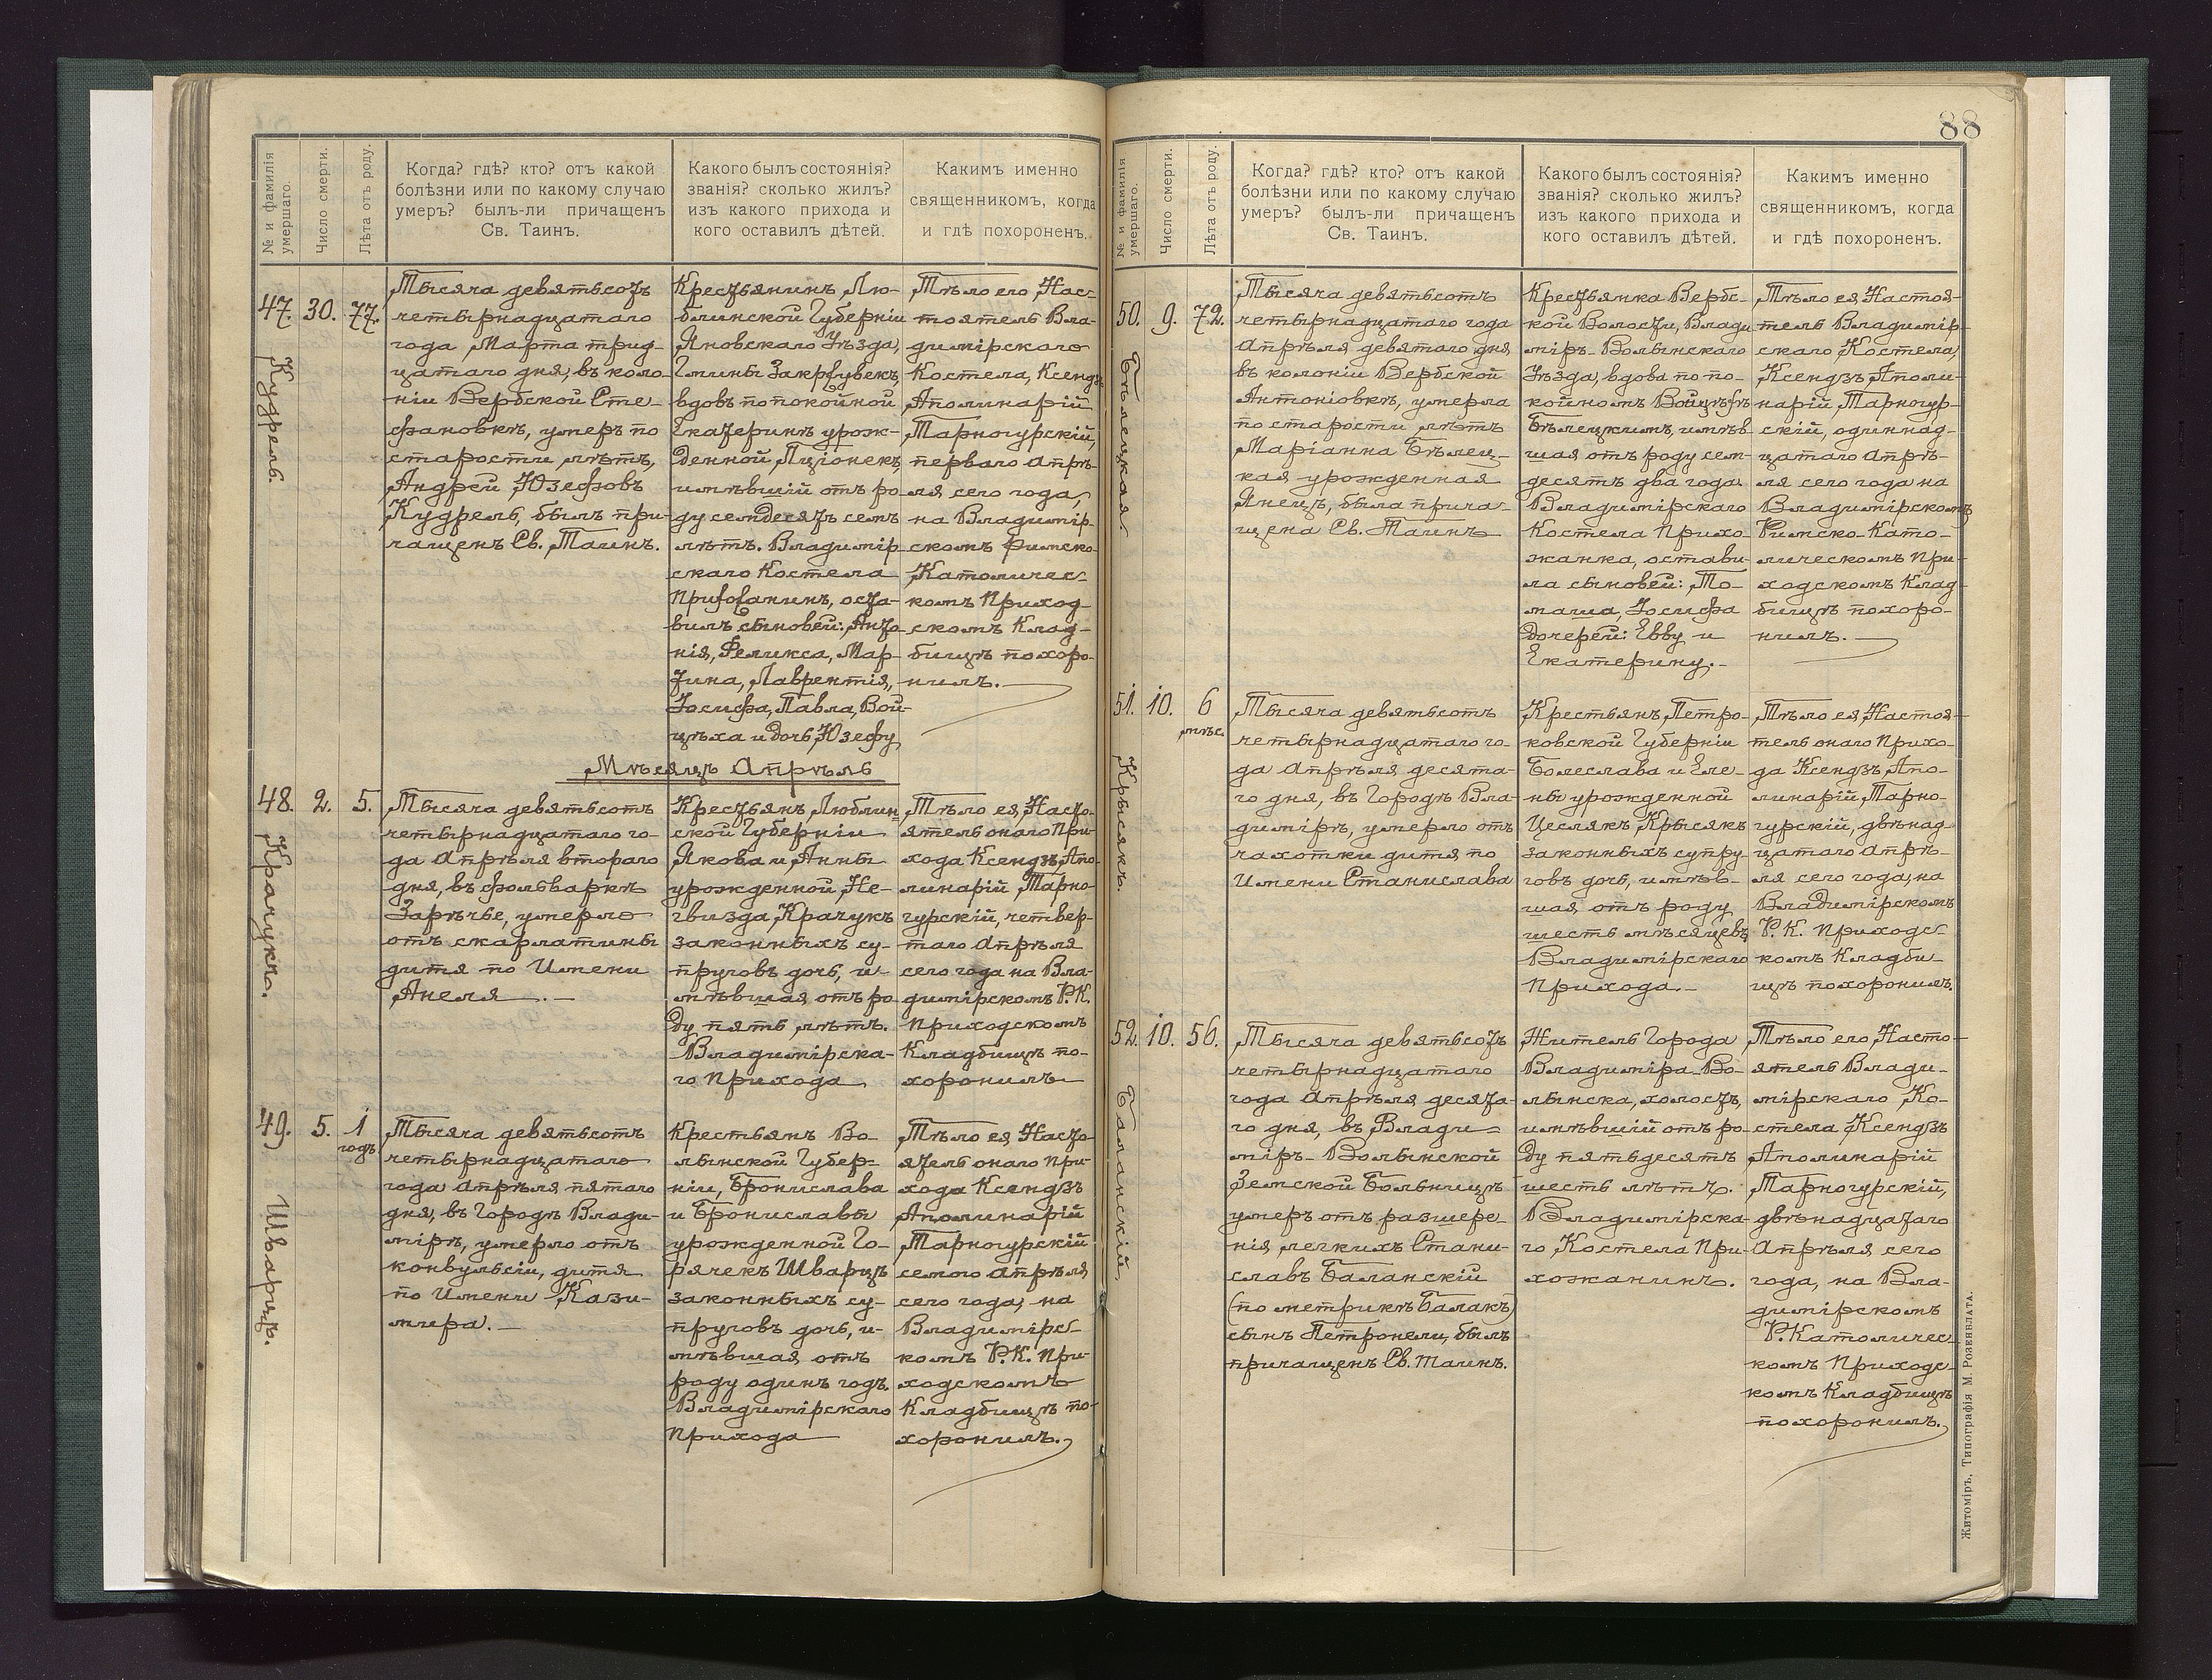 88
№ и фамилія умершаго.
Число смерти.
Лѣта отъ роду.
Когда? гдѣ? кто? отъ какой
болѣзни или по какому случаю
умеръ? былъ-ли причащенъ
Св. Таинъ.
Какого былъ состоянія?
званія? сколько жилъ?
изъ какого прихода и
кого оставилъ дѣтей.
Какимъ именно
священникомъ, когда
и гдѣ похороненъ.
47. 30. 77.
Кудрель.
Тысяча девятьсотъ
четырнадцатаго
года Марта трид-
цатаго дня, въ коло-
ніи Вербской Сте-
фановкѣ, умеръ по
старости лѣтъ,
Андрей Юзефовъ
Кудрель, былъ при-
чащенъ Св. Таинъ.
Крестьянинъ, Лю-
блинской Губерніи
Яновскаго Уѣзда,
Гмины Закржувекъ,
вдовъ по покойной
Екатеринѣ урож-
денной Пціонекъ,
имѣвшій отъ ро-
ду семдесятъ семь
лѣтъ. Владимір-
скаго Костела
Прихожанинъ, оста-
вилъ сыновей: Анто-
нія, Феликса, Мар-
тина, Лаврентія,
Іосифа, Павла, Вой-
цѣха и дочь Юзефу
Тѣло его Нас-
тоятель Вла-
димірскаго
Костела, Ксендзъ
Аполинарій
Тарногурскій,
перваго Апрѣ-
ля сего года,
на Владимір-
скомъ Римско-
Католичес-
комъ Приход-
скомъ Клад-
бищѣ похоро-
нилъ.
Мѣсяцъ Апрѣль
48. 2. 5.
Крачукъ.
Тысяча девятьсотъ
четырнадцатаго го-
да Апрѣля втораго
дня, въ фольваркѣ
Зарѣчье, умерло
отъ скарлатины
дитя по Имени
Анеля.
Крестьянъ, Люблин-
ской Губерніи
Якова и Анны
урожденной Не-
гвизда, Крачукъ
законныхъ су-
пруговъ дочь, и-
мѣвшая отъ ро-
ду пять лѣтъ.
Владимірска-
го Прихода
Тѣло ея Насто-
ятель онаго При-
хода Ксендзъ Апо-
линарій Тарно-
гурскій, четвер-
таго Апрѣля
сего года на Вла-
димірскомъ Р. К.
Приходскомъ
Кладбищѣ по-
хоронилъ
49. 5. 1
годъ
Шварцъ.
Тысяча девятьсотъ
четырнадцатаго
года Апрѣля пятаго
дня, въ Городѣ Влади-
мірѣ, умерло отъ
конвульсіи, дитя
по Имени Кази-
мира.
Крестьянъ Во-
лынской Губер-
ніи, Бронислава
и Брониславы
урожденной Го-
рячекъ Шварцъ
законныхъ су-
пруговъ дочь, и-
мѣвшая отъ
роду одинъ годъ.
Владимірскаго
Прихода
Тѣло ея Насто-
ятель онаго При-
хода Ксендзъ
Аполинарій
Тарногурскій
семого Апрѣля
сего года, на
Владимірс-
комъ Р. К. При-
ходскомъ
Кладбищѣ по-
хоронилъ.
№ и фамилія умершаго.
Число смерти.
Лѣта отъ роду.
Когда? гдѣ? кто? отъ какой
болѣзни или по какому случаю
умеръ? былъ-ли причащенъ
Св. Таинъ.
Какого былъ состоянія?
званія? сколько жилъ?
изъ какого прихода и
кого оставилъ дѣтей.
Какимъ именно
священникомъ, когда
и гдѣ похороненъ.
50. 9. 72.
Бѣлецкая
Тысяча девятьсотъ
четырнадцатаго года
Апрѣля девятаго дня
въ колоніи Вербской
Антоніовкѣ, умерла
по старости лѣтъ
Маріанна Бѣлец-
кая урожденная
Янецъ, была прича-
щена Св. Таинъ
Крестьянка Вербс-
кой Волости, Влади-
міръ-Волынскаго
Уѣзда, вдова по по-
койномъ Войцѣхѣ
Бѣлецкимъ, имѣв-
шая отъ роду сем-
десятъ два года.
Владимірскаго
Костела Прихо-
жанка, остави-
ла сыновей: То-
маша, Іосифа
дочерей: Евву и
Екатерину.
Тѣло ея Настоя-
тель Владимір-
скаго Костела,
Ксендзъ Аполи-
нарій Тарногур-
скій, одиннад-
цатаго Апрѣ-
ля сего года на
Владимірскомъ
Римско-Като-
лическомъ При-
ходскомъ Клад-
бищѣ похоро-
нилъ.
51. 10. 6
мѣс.
Крысякъ.
Тысяча девятьсотъ
четырнадцатаго го-
да Апрѣля десята-
го дня, въ Городѣ Вла-
димірѣ, умерло отъ
чахотки дитя по
Имени Станислава
Крестьянъ, Петро-
ковской Губерніи
Болеслава и Еле-
ны урожденной
Цеслякъ, Крысякъ
законныхъ супру-
говъ дочь, имѣв-
шая отъ роду
шесть мѣсяцевъ
Владимірскаго
Прихода.
Тѣло ея Настоя-
тель онаго Прихо-
да Ксендзъ Апо-
линарій Тарно-
гурскій, двѣнад-
цатаго Апрѣ-
ля сего года, на
Владимірскомъ
Р. К. Приходс-
комъ Кладби-
щѣ похоронилъ.
52. 10. 56.
Баланскій
Тысяча девятьсотъ
четырнадцатаго
года Апрѣля десята-
го дня, въ Влади-
міръ-Волынской
Земской Больницѣ
умеръ отъ разшере-
нія легкихъ Стани-
славъ Баланскій
(по метрикѣ Балакъ)
сынъ Петронели, былъ
причащенъ Св. Таинъ.
Житель Города
Владиміра-Во-
лынска, холостъ,
имѣвшій отъ ро-
ду пятьдесятъ
шесть лѣтъ.
Владимірска-
го Костела При-
хожанинъ.
Тѣло его Насто-
ятель Влади-
мірскаго Ко-
стела Ксендзъ
Аполинарій
Тарногурскій,
двѣнадцатаго
Апрѣля сего
года, на Вла-
димірскомъ
Р. Католичес-
комъ Приходс-
комъ Кладбищѣ
похоронилъ.
Житоміръ, Типографія М. Розенблата.